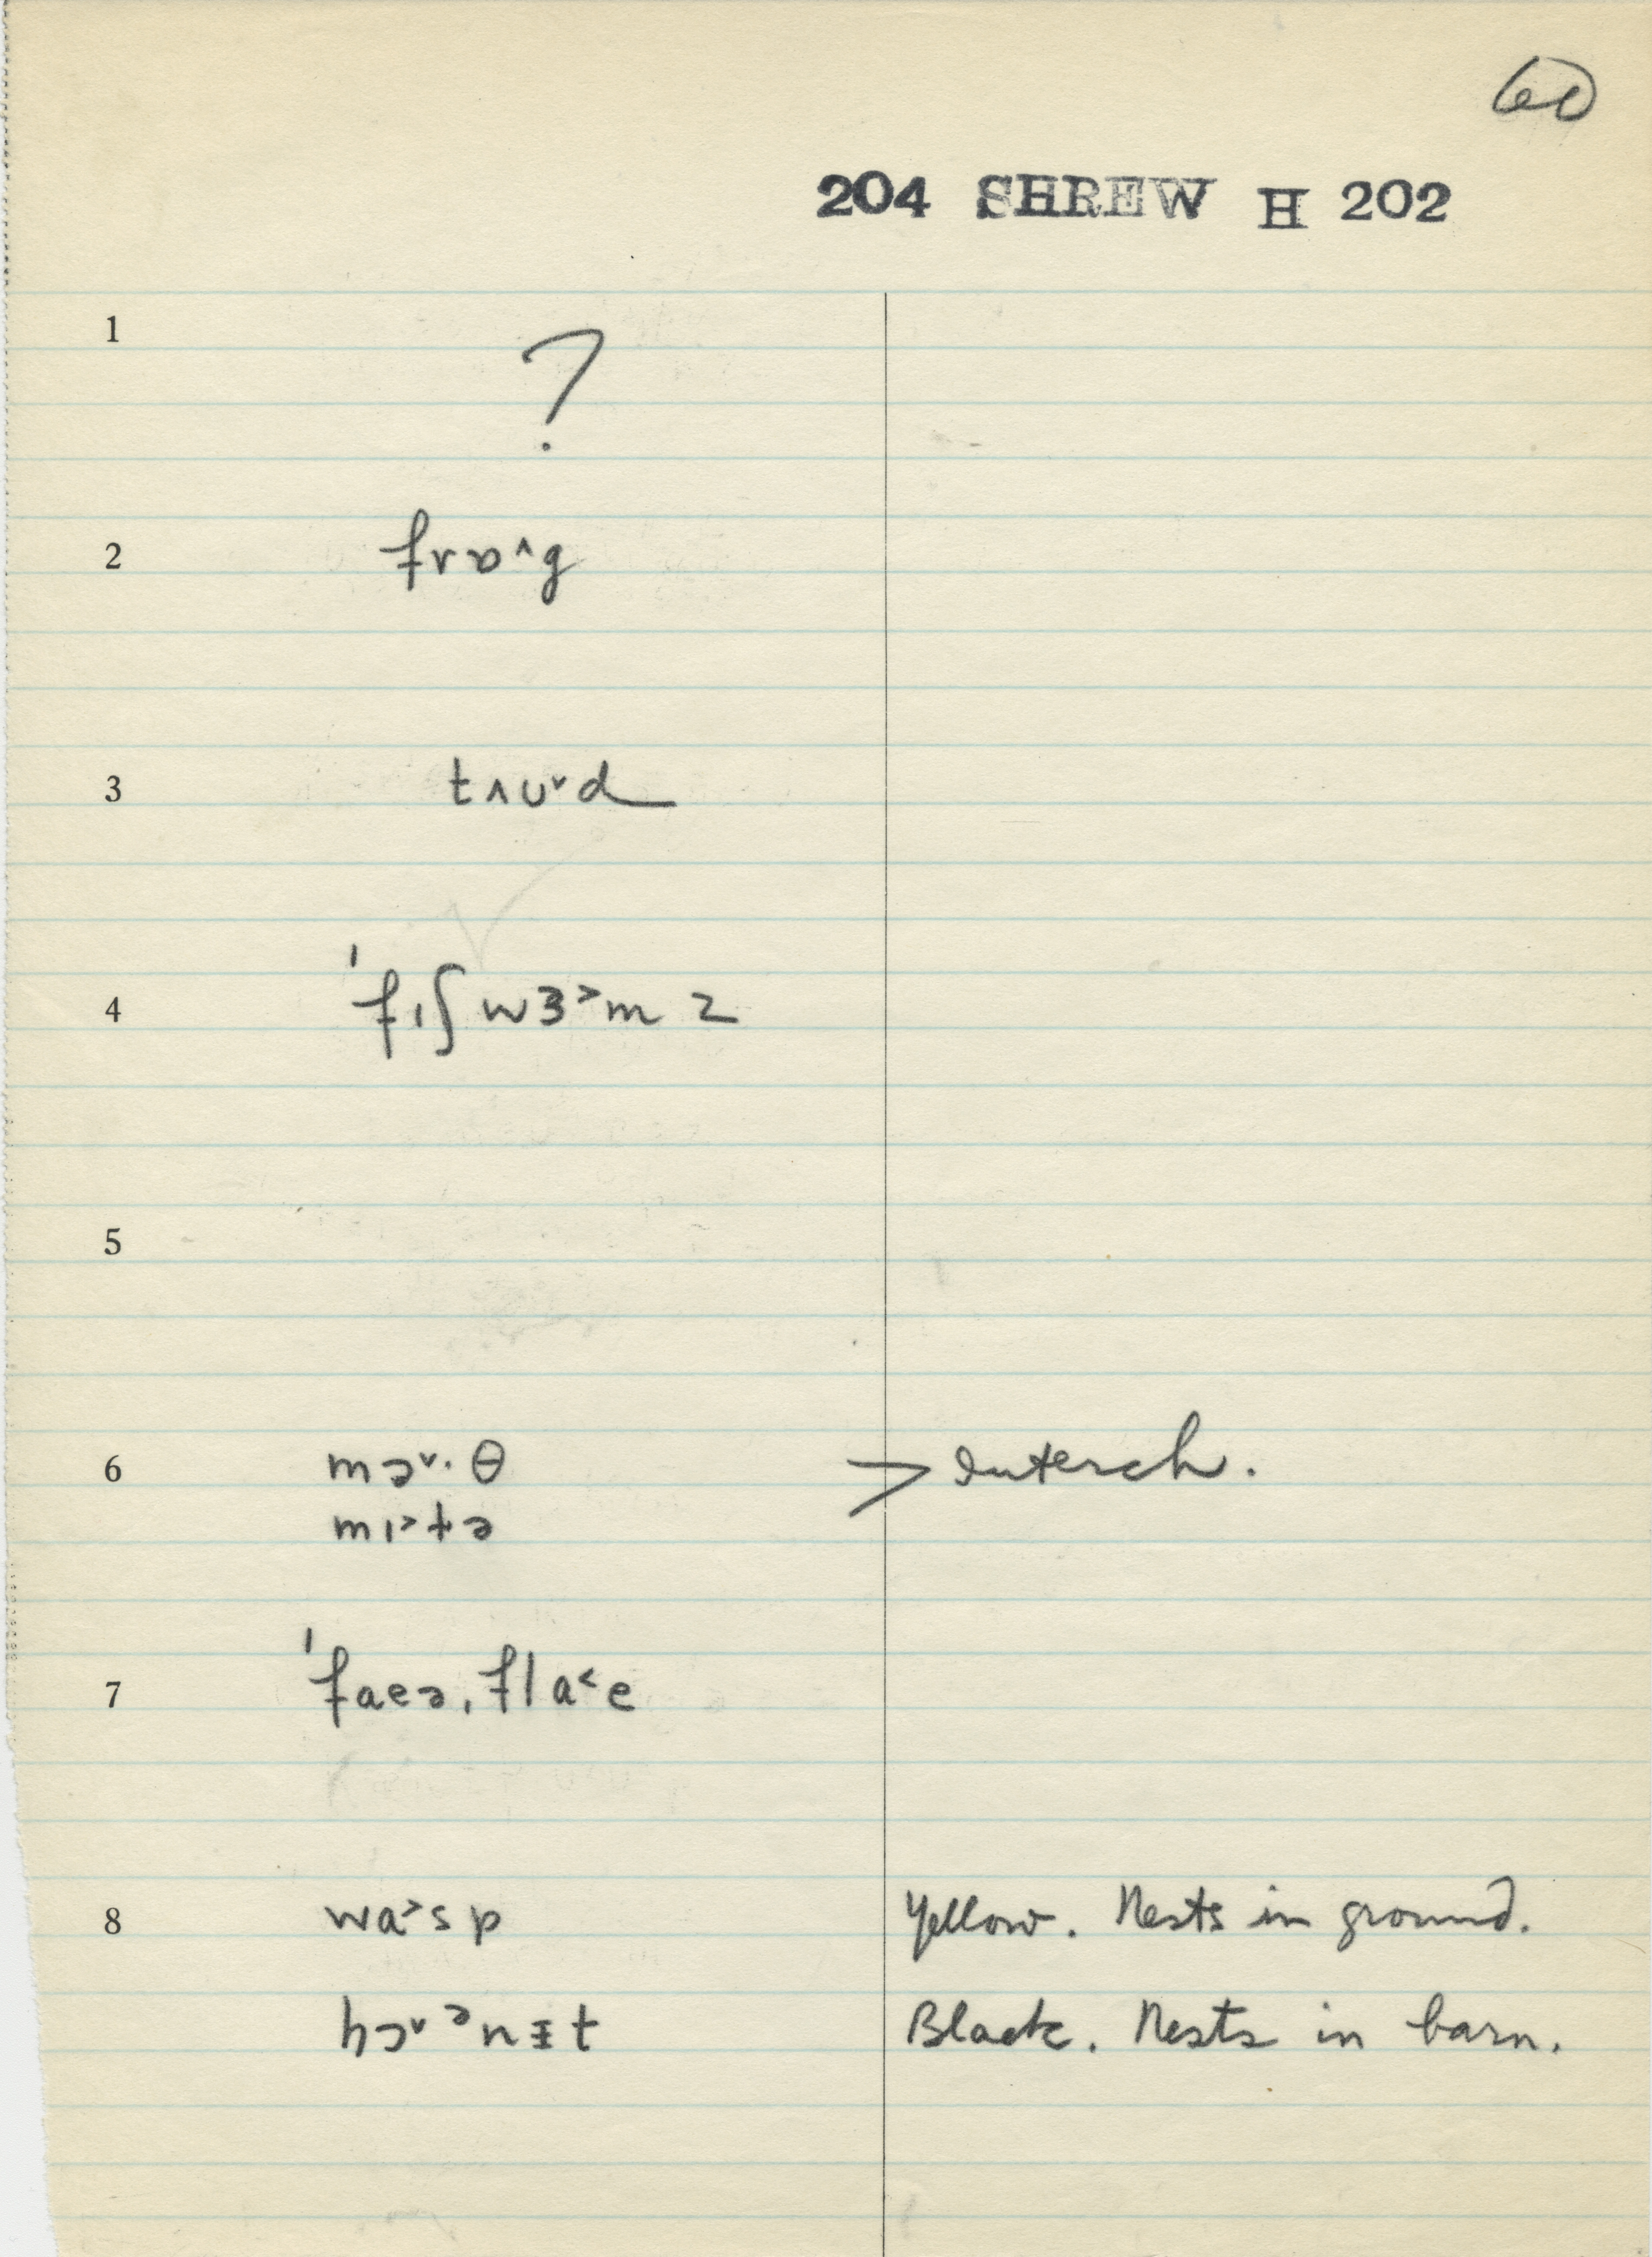 60
204 SHREW H 202
1 ?
2 frɒ˄g
3 tʌu˅d
4 ˈfıʃwɜ˃mz
5
6 mɔ˅·θ > Interch.
mı˃tə
7 ˈfaeəˌfla˂e
8 wa˃sp Yellow. Nests in ground.
hɔ˅ᵊnɪ̵t Black. Nests in barn.